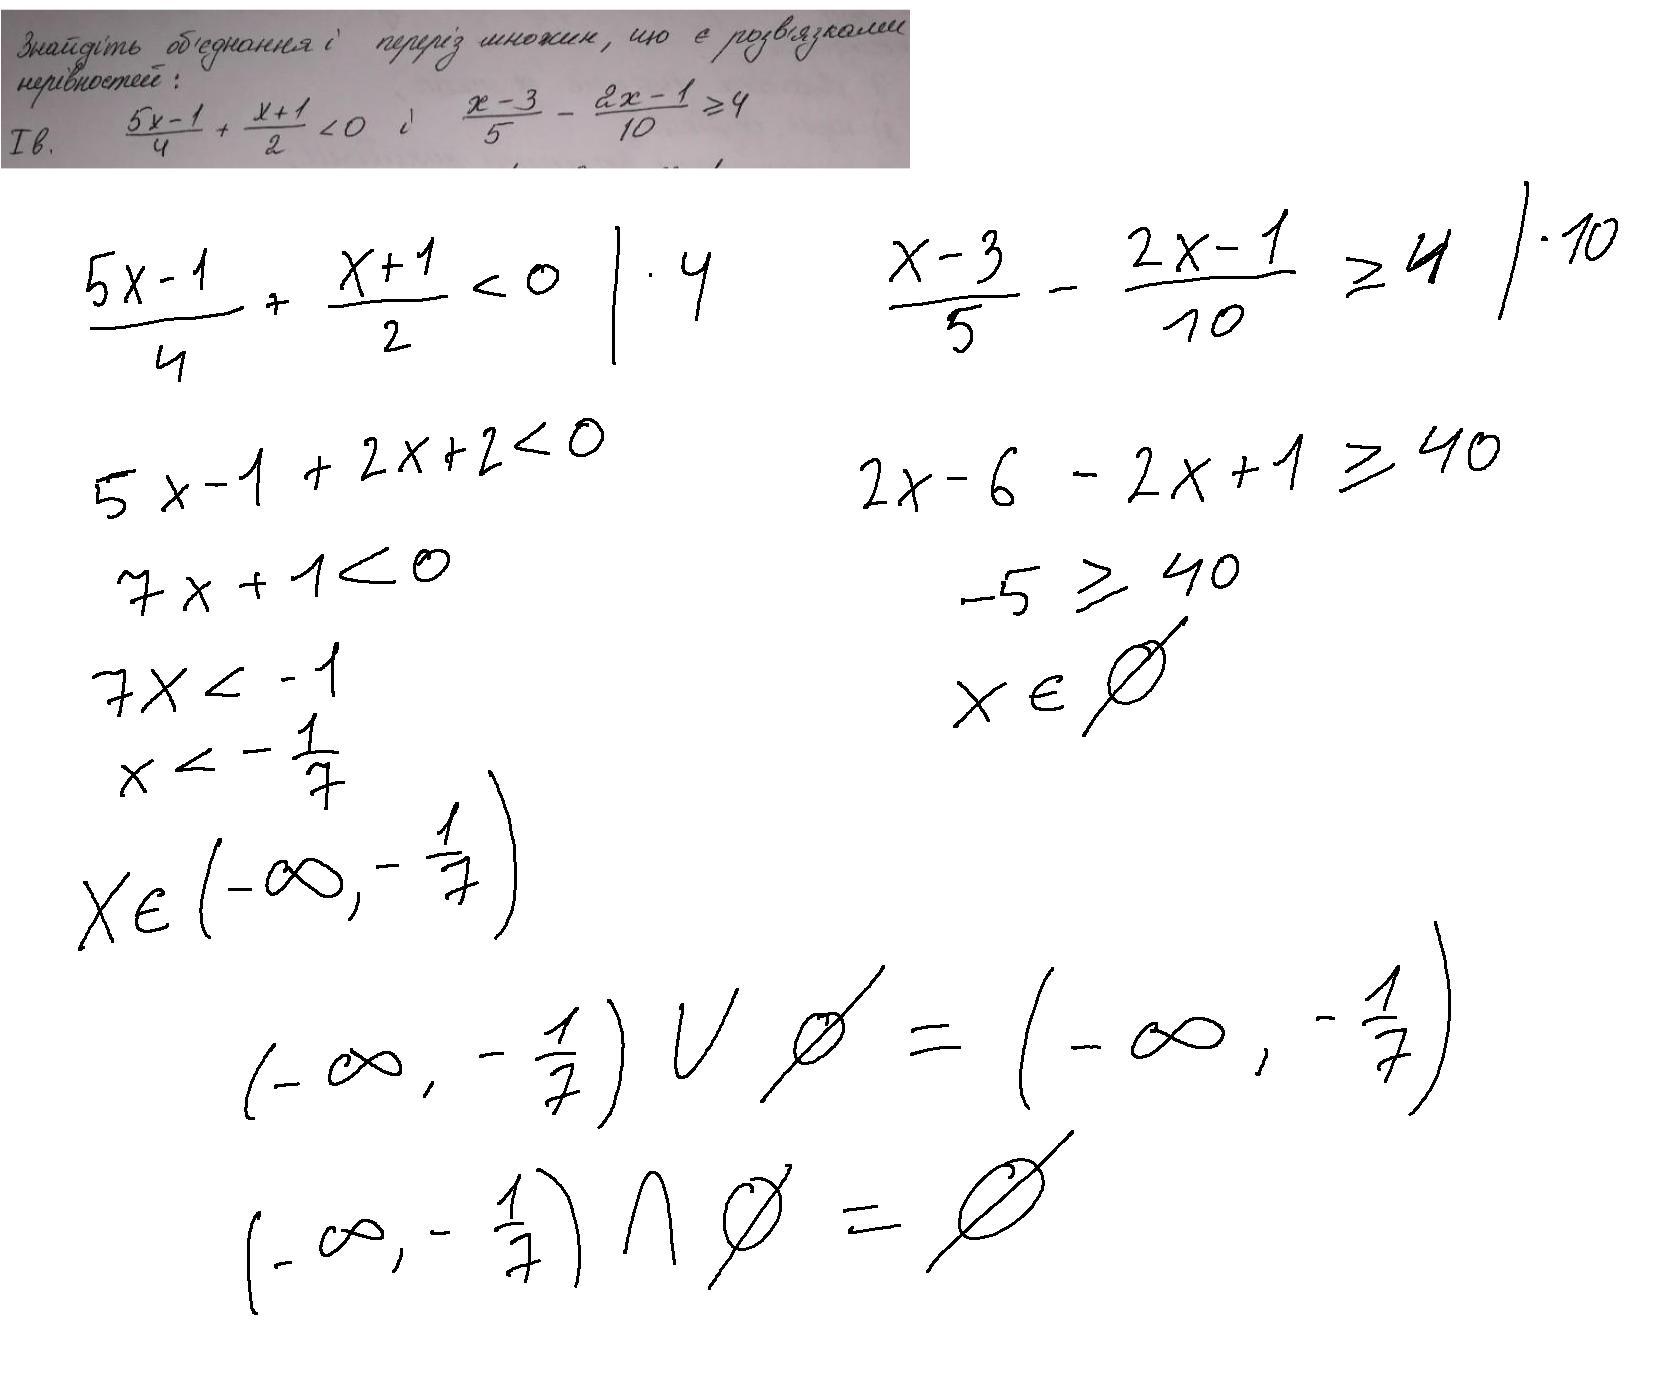 Знайдіть об'єднання і переріз множин, що є розв'язками
нерівностей:
I в. (5x-1)/4 + (x+1)/2 < 0 і (x-3)/5 - (2x-1)/10 ≥ 4
(5x-1)/4 + (x+1)/2 < 0 | · 4
5x-1 + 2x+2 < 0
7x + 1 < 0
7x < -1
x < -1/7
x ∈ (-∞, -1/7)
(x-3)/5 - (2x-1)/10 ≥ 4 | · 10
2x-6 - 2x+1 ≥ 40
-5 ≥ 40
x ∈ ∅
(-∞, -1/7) ∪ ∅ = (-∞, -1/7)
(-∞, -1/7) ∩ ∅ = ∅